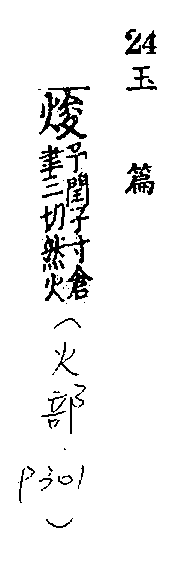 24玉篇
焌子閏子寸倉
聿二切然火
(火部.
P301)